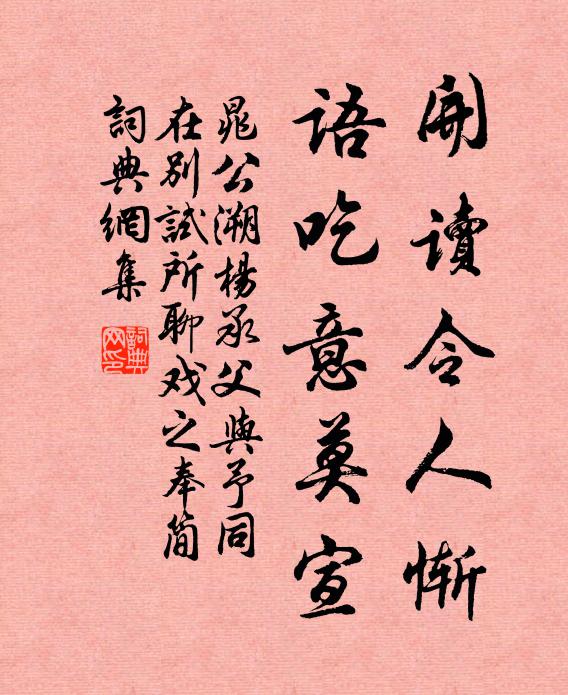 開讀令人慚
語吃意莫宣
晁公溯楊承父與予同
在別試所聊戏之奉简
詞典網集
詞典网印